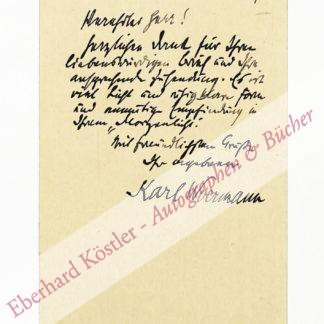 Verehrter Herr!
Herzlichen Dank für Ihren
liebenswürdigen Brief und Ihre
ansprechende Zusendung. Es ist
viel Licht und ruhig klare Form
und anmutige Empfindung in
Ihrem „Morgenlicht“.
Mit freundlichsten Grüßen
Ihr ergebener
Karl Woermann
Eberhard Köstler - Autographen & Bücher